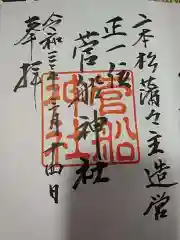 二本松藩々主造営
正一位
菅船神社
令和三年三月十四日
奉拝
菅船
神社